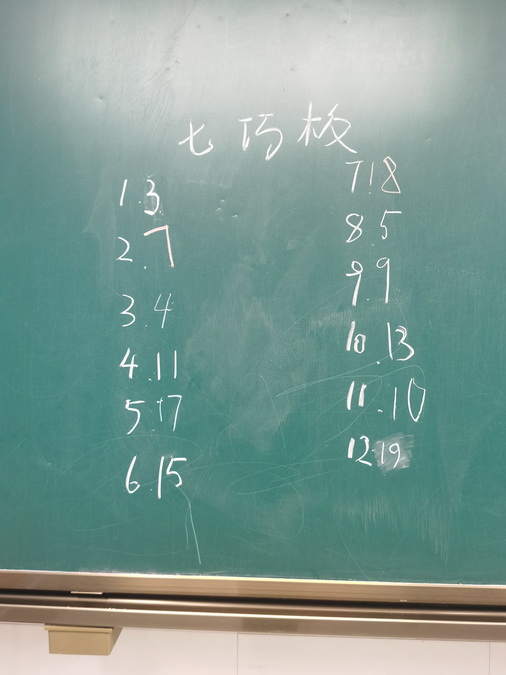 七巧板
1.3
2.7
3.4
4.11
5.17
6.15
7.18
8.5
9.9
10.13
11.10
12.19